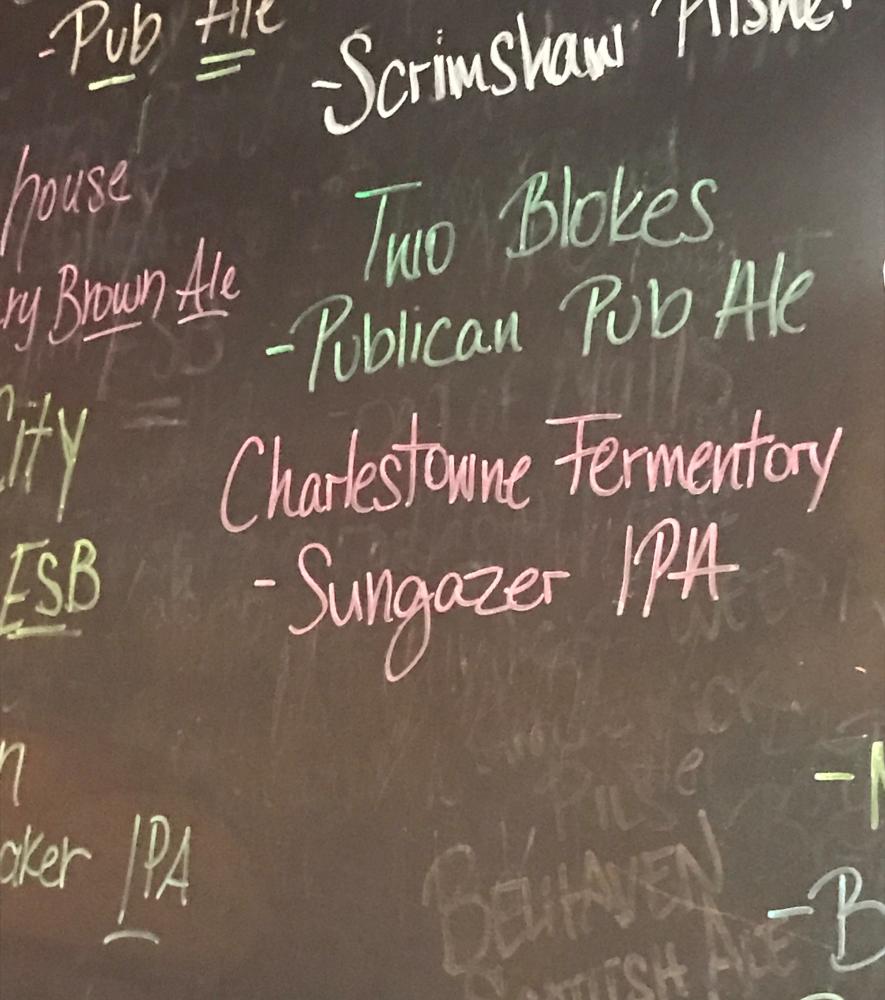 -Pub Ale
house
ry Brown Ale
City
ESB
n
oker IPA
-Scrimshaw Pilsner
Two Blokes
-Publican Pub Ale
Charlestowne Fermentory
-Sungazer IPA
BELHAVEN
SCOTTISH ALE
-B